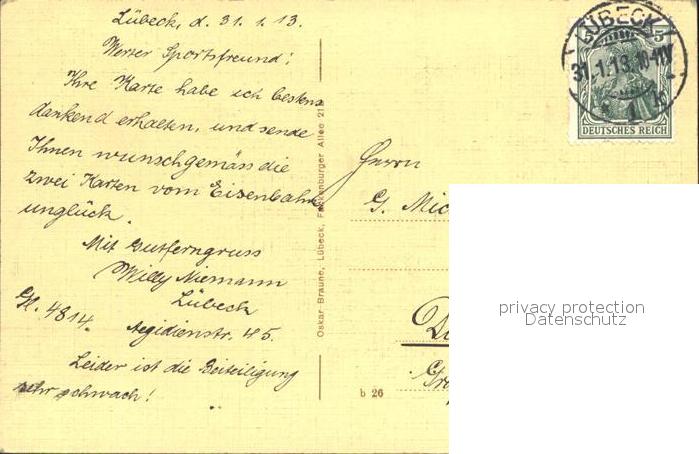 Lübeck, d. 31. 1. 13.
Werter Sportsfreund!
Ihre Karte habe ich bestens
dankend erhalten, und sende
Ihnen wunschgemäss die
zwei Karten vom Eisenbahn
unglück.
Mit Gutferngruss
Willy Niemann
Lübeck
4814.
Aegidienstr. 45.
Leider ist die Beteiligung
sehr schwach!
Oskar Braune, Lübeck, Fackenburger Allee 21a
b 26
Herrn
G. Mic
LÜBECK
31.1.13.10-11V
1
5 5
DEUTSCHES REICH
privacy protection
Datenschutz